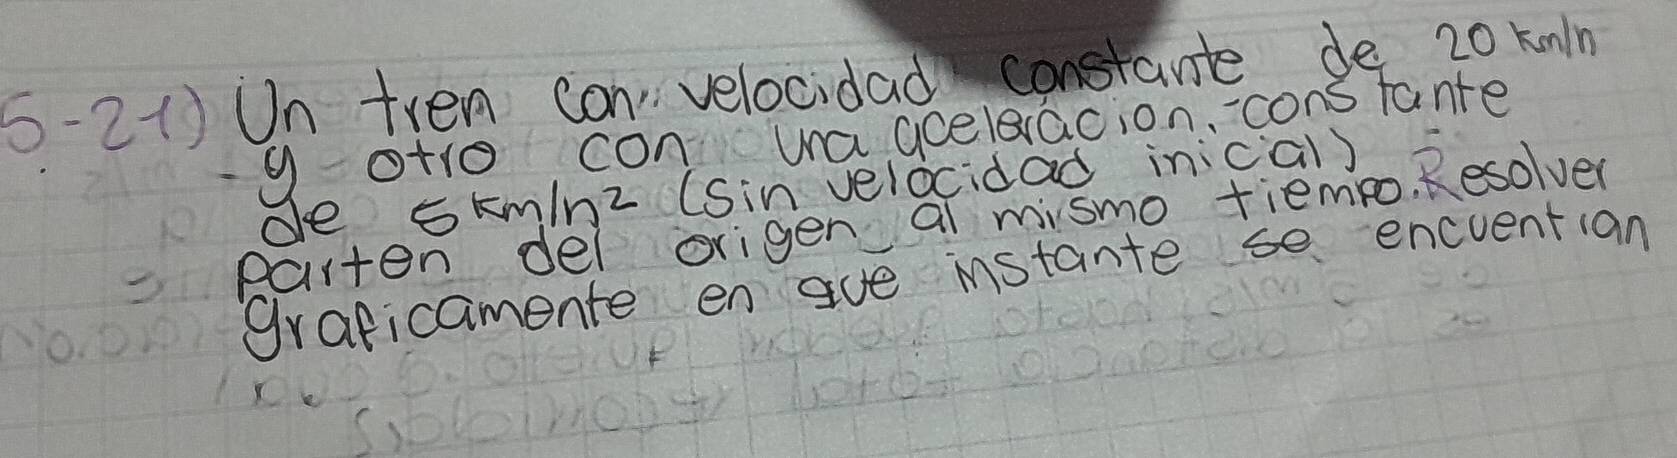 5-21) Un tren con velocidad constante de 20 km/h
y otro con una aceleración constante
de 5 km/h² (sin velocidad inicial)
parten del origen al mismo tiempo. Resolver
graficamente en que instante se encuentran